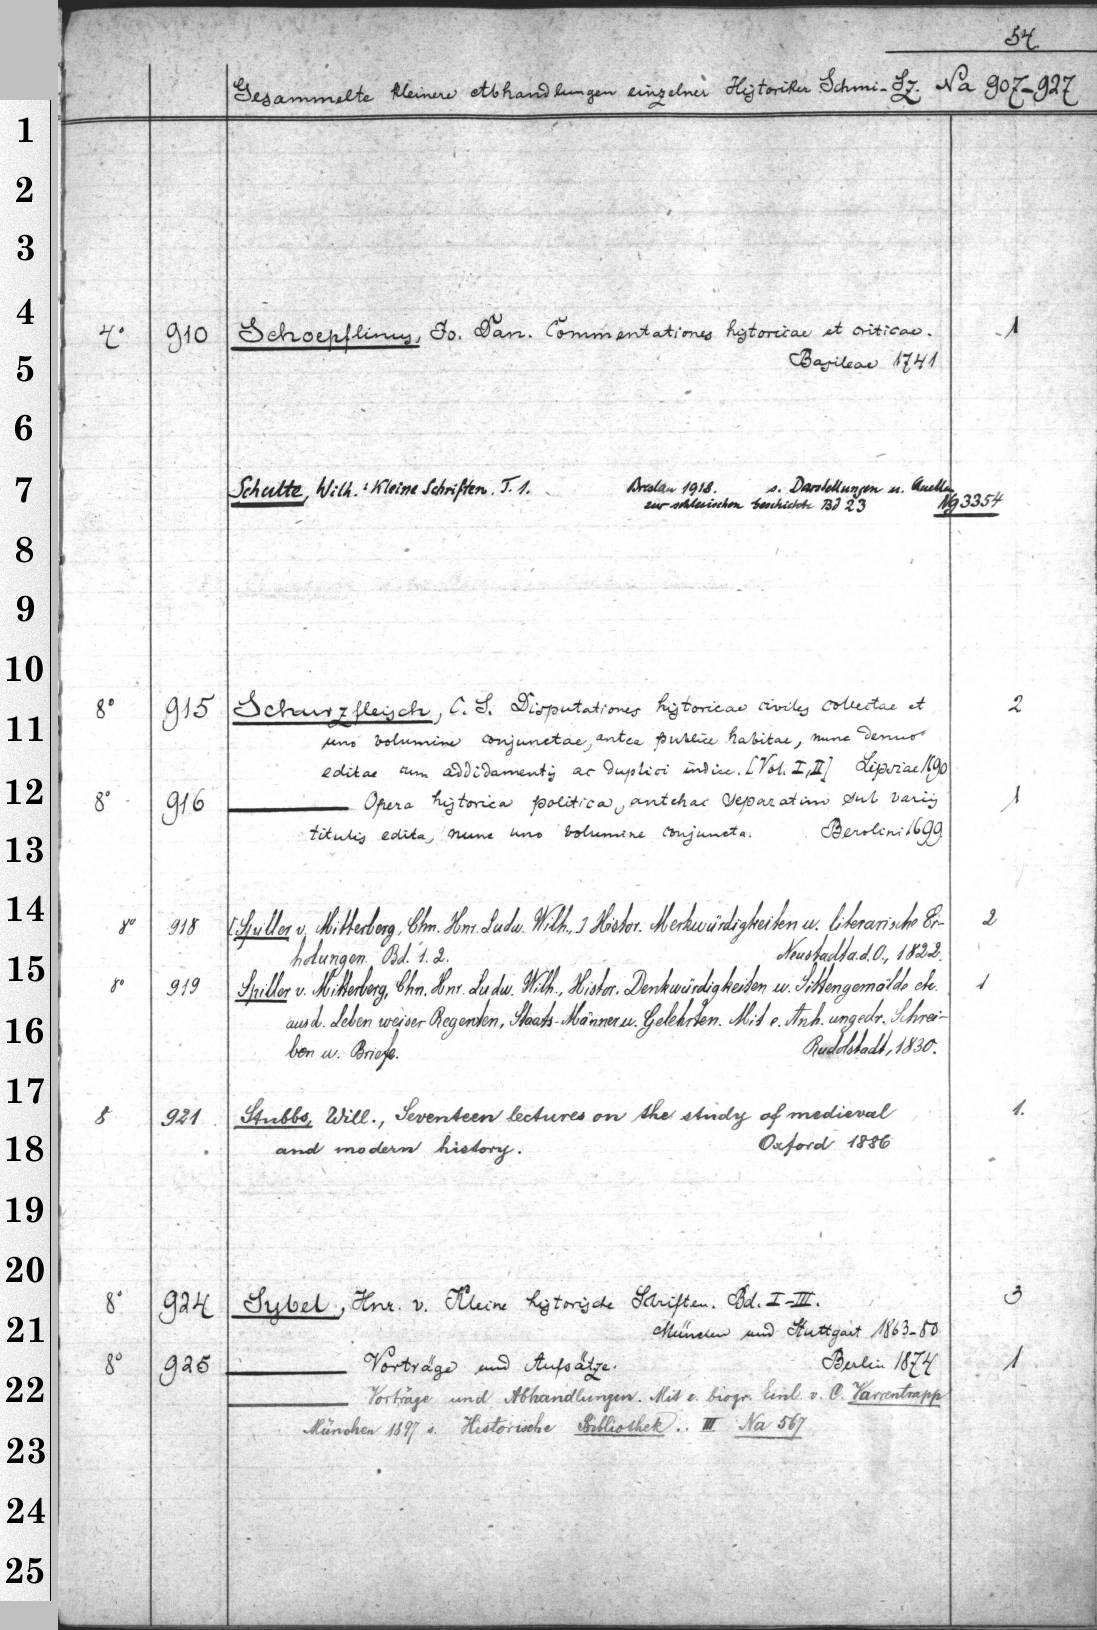 54
Gesammelte kleinere Abhandlungen einzelner Historiker Schmi-Sz. Na 907-927
1
2
3
4
4° 910 Schoepflinus, Jo. Dan. Commentationes historicae et criticae. 1
Basileae 1741
5
6
7
Schulte, Wilh.: Kleine Schriften. T. 1. Breslau 1918. s. Darstellungen u. Quellen
zur schlesischen Geschichte Bd 23 Ng 3354
8
9
10
8° 915 Schurzfleisch, C. S. Disputationes historicae civiles collectae et 2
11
uno volumine conjunctae, antea publice habitae, nunc denuo
editae cum addidamentis ac duplici indice. [Vol. I, II] Lipsiae 1690
12
8° 916 ——— Opera historica politica, antehac separatim sub variis 1
titulis edita, nunc uno volumine conjuncta. Berolini 1699
13
14
8° 918 [Spiller v. Mitterberg, Chn. Hnr. Ludw. Wilh.,] Histor. Merkwürdigkeiten u. literarische Er- 2
holungen. Bd. 1. 2. Neustadt a.d.O., 1822.
15
8° 919 Spiller v. Mitterberg, Chn. Hnr. Ludw. Wilh., Histor. Denkwürdigkeiten u. Sittengemälde etc. 1
aus d. Leben weiser Regenten, Staats-Männer u. Gelehrten. Mit e. Anh. ungedr. Schrei-
16
ben u. Briefe. Rudolstadt, 1830.
17
8 921 Stubbs, Will., Seventeen lectures on the study of medieval 1.
18
and modern history. Oxford 1886
19
20
8° 924 Sybel, Hnr. v. Kleine historische Schriften. Bd. I-III. 3
21
München und Stuttgart 1863-80
8° 925 ——— Vorträge und Aufsätze. Berlin 1874 1
22
——— Vorträge und Abhandlungen. Mit e. biogr. Einl. v. C. Varrentrapp
München 1897 s. Historische Bibliothek.. III Na 567
23
24
25